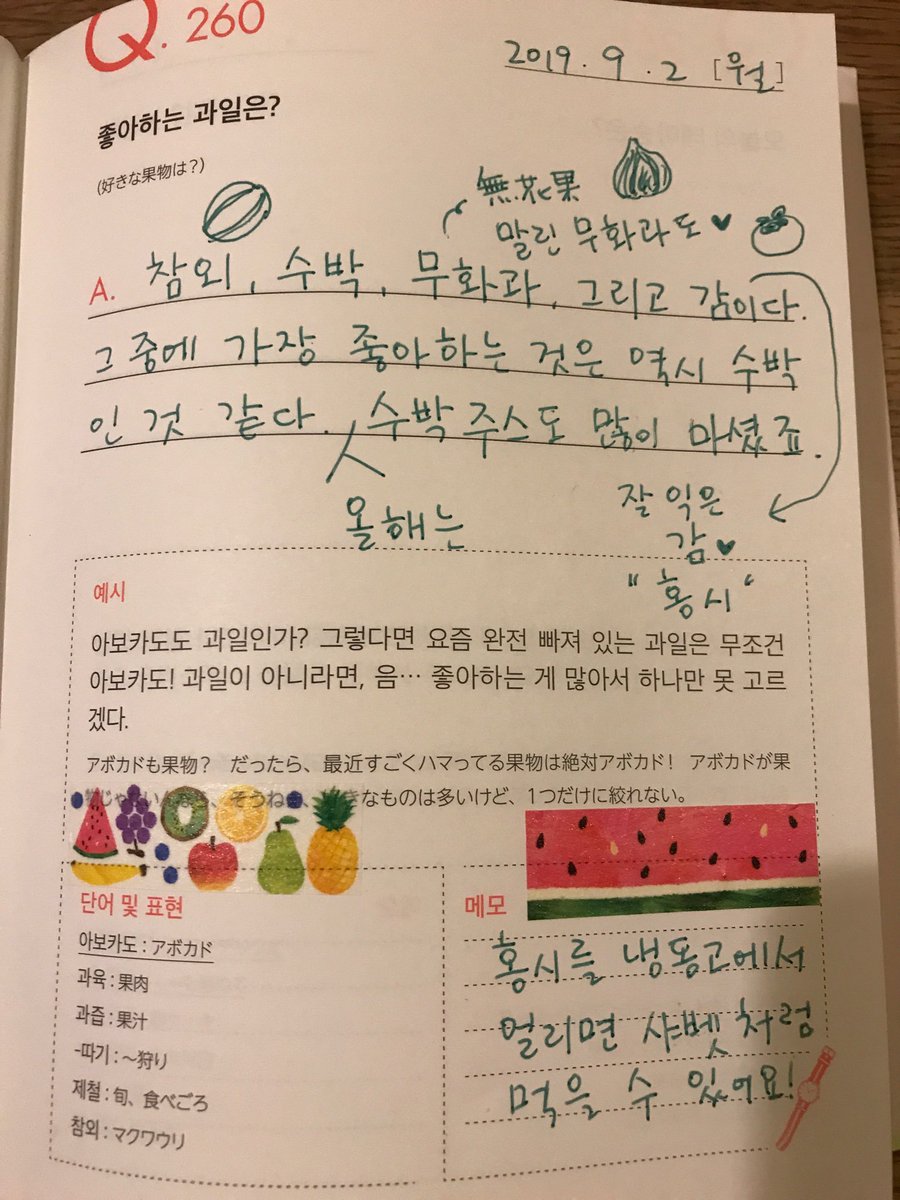 Q. 260
2019. 9. 2 [월]
좋아하는 과일은?
(好きな果物は?)
無花果
말린 무화과도 ♥
A. 참외, 수박, 무화과, 그리고 감이다.
그 중에 가장 좋아하는 것은 역시 수박
인 것 같다. 수박 주스도 많이 마셨죠.
올해는
잘 익은
감 ♥
"홍시"
예시
아보카도도 과일인가? 그렇다면 요즘 완전 빠져 있는 과일은 무조건
아보카도! 과일이 아니라면, 음… 좋아하는 게 많아서 하나만 못 고르
겠다.
アボカドも果物? だったら、最近すごくハマってる果物は絶対アボカド! アボカドが果
物じゃないんなら、そうねぇ、好きなものは多いけど、1つだけに絞れない。
단어 및 표현
아보카도 : アボカド
과육 : 果肉
과즙 : 果汁
-따기 : ~狩り
제철 : 旬、食べごろ
참외 : マクワウリ
메모
홍시를 냉동고에서
얼리면 샤벳처럼
먹을 수 있어요!